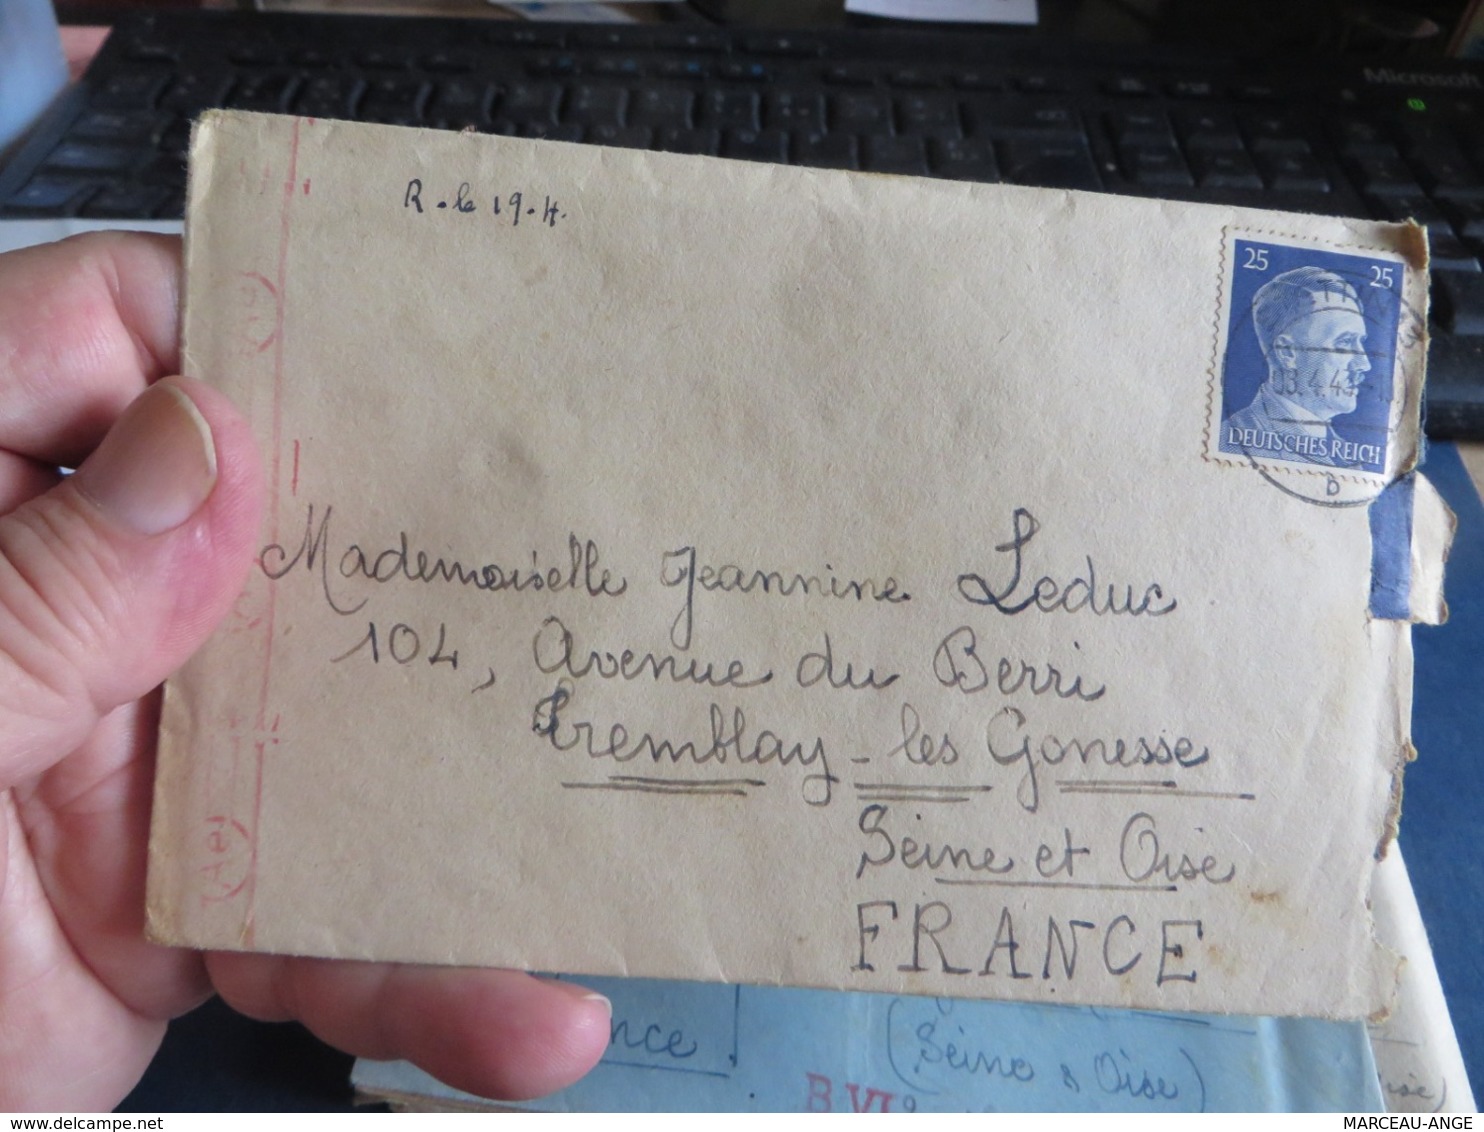 Microsoft
R. le 19.4.
25 25
03.4.4
DEUTSCHES REICH
B
Mademoiselle Jeannine Leduc
104, Avenue du Berri
Tremblay-les Gonesse
Seine et Oise
FRANCE
Ae
(Seine & Oise)
B VI
MARCEAU-ANGE